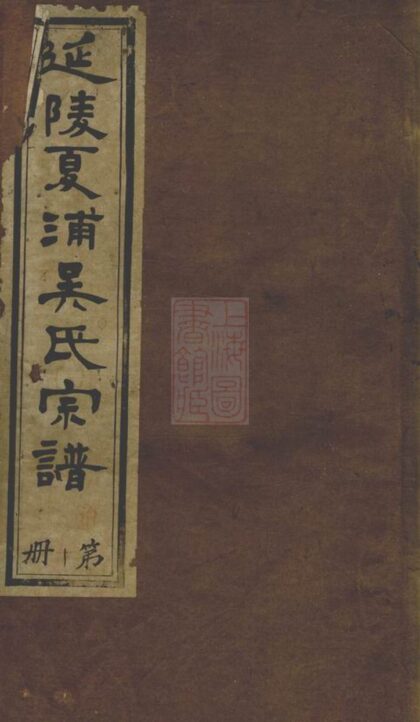 延陵夏浦吳氏宗譜
第一册
上海圖
書館藏